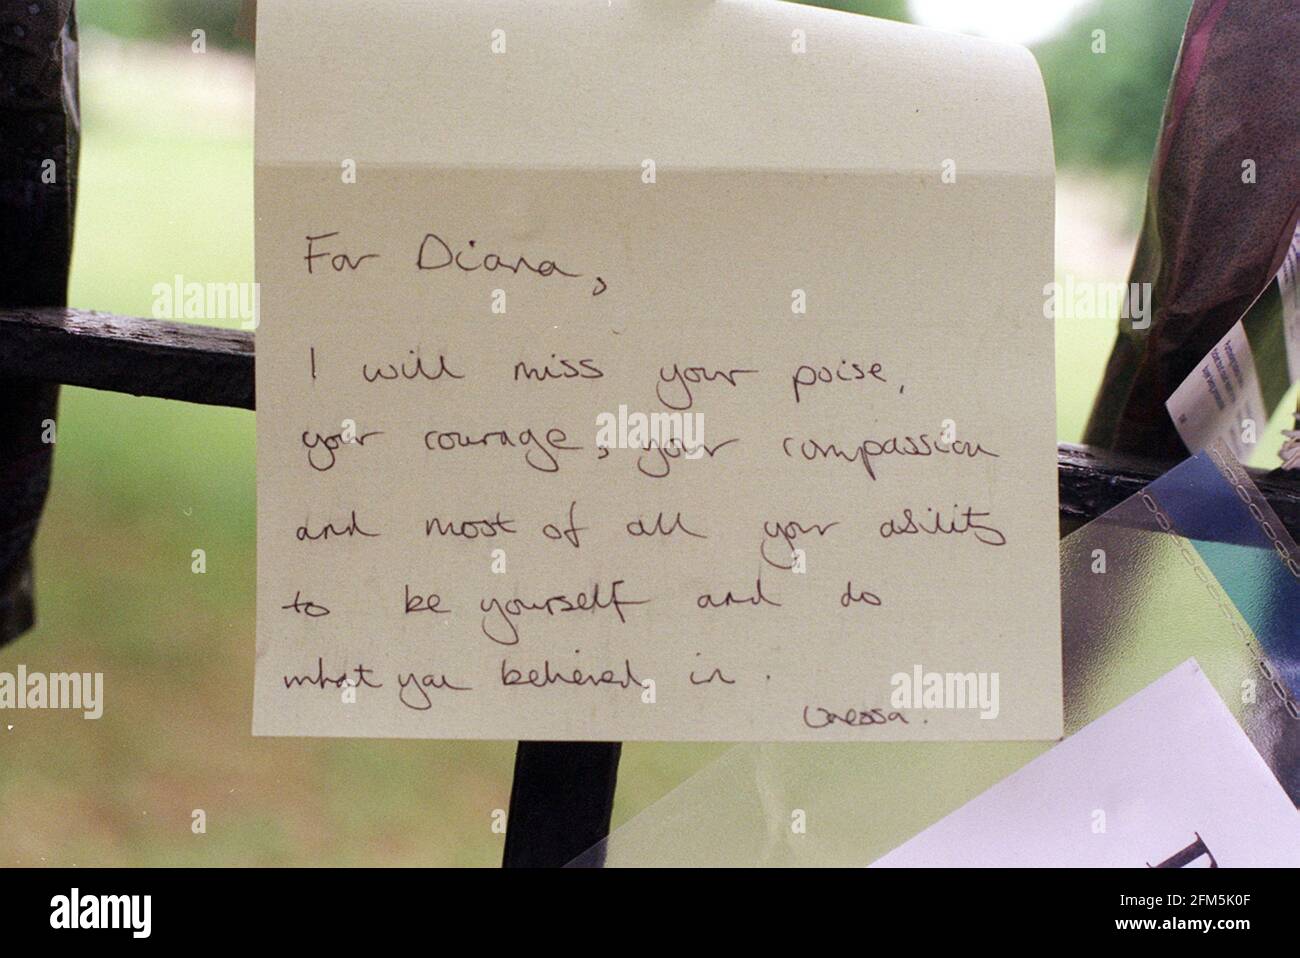 For Diana,
I will miss your poise,
your courage, your compassion
and most of all your ability
to be yourself and do
what you believed in.
Vanessa.
alamy
alamy
Image ID: 2FM5K0F
www.alamy.com